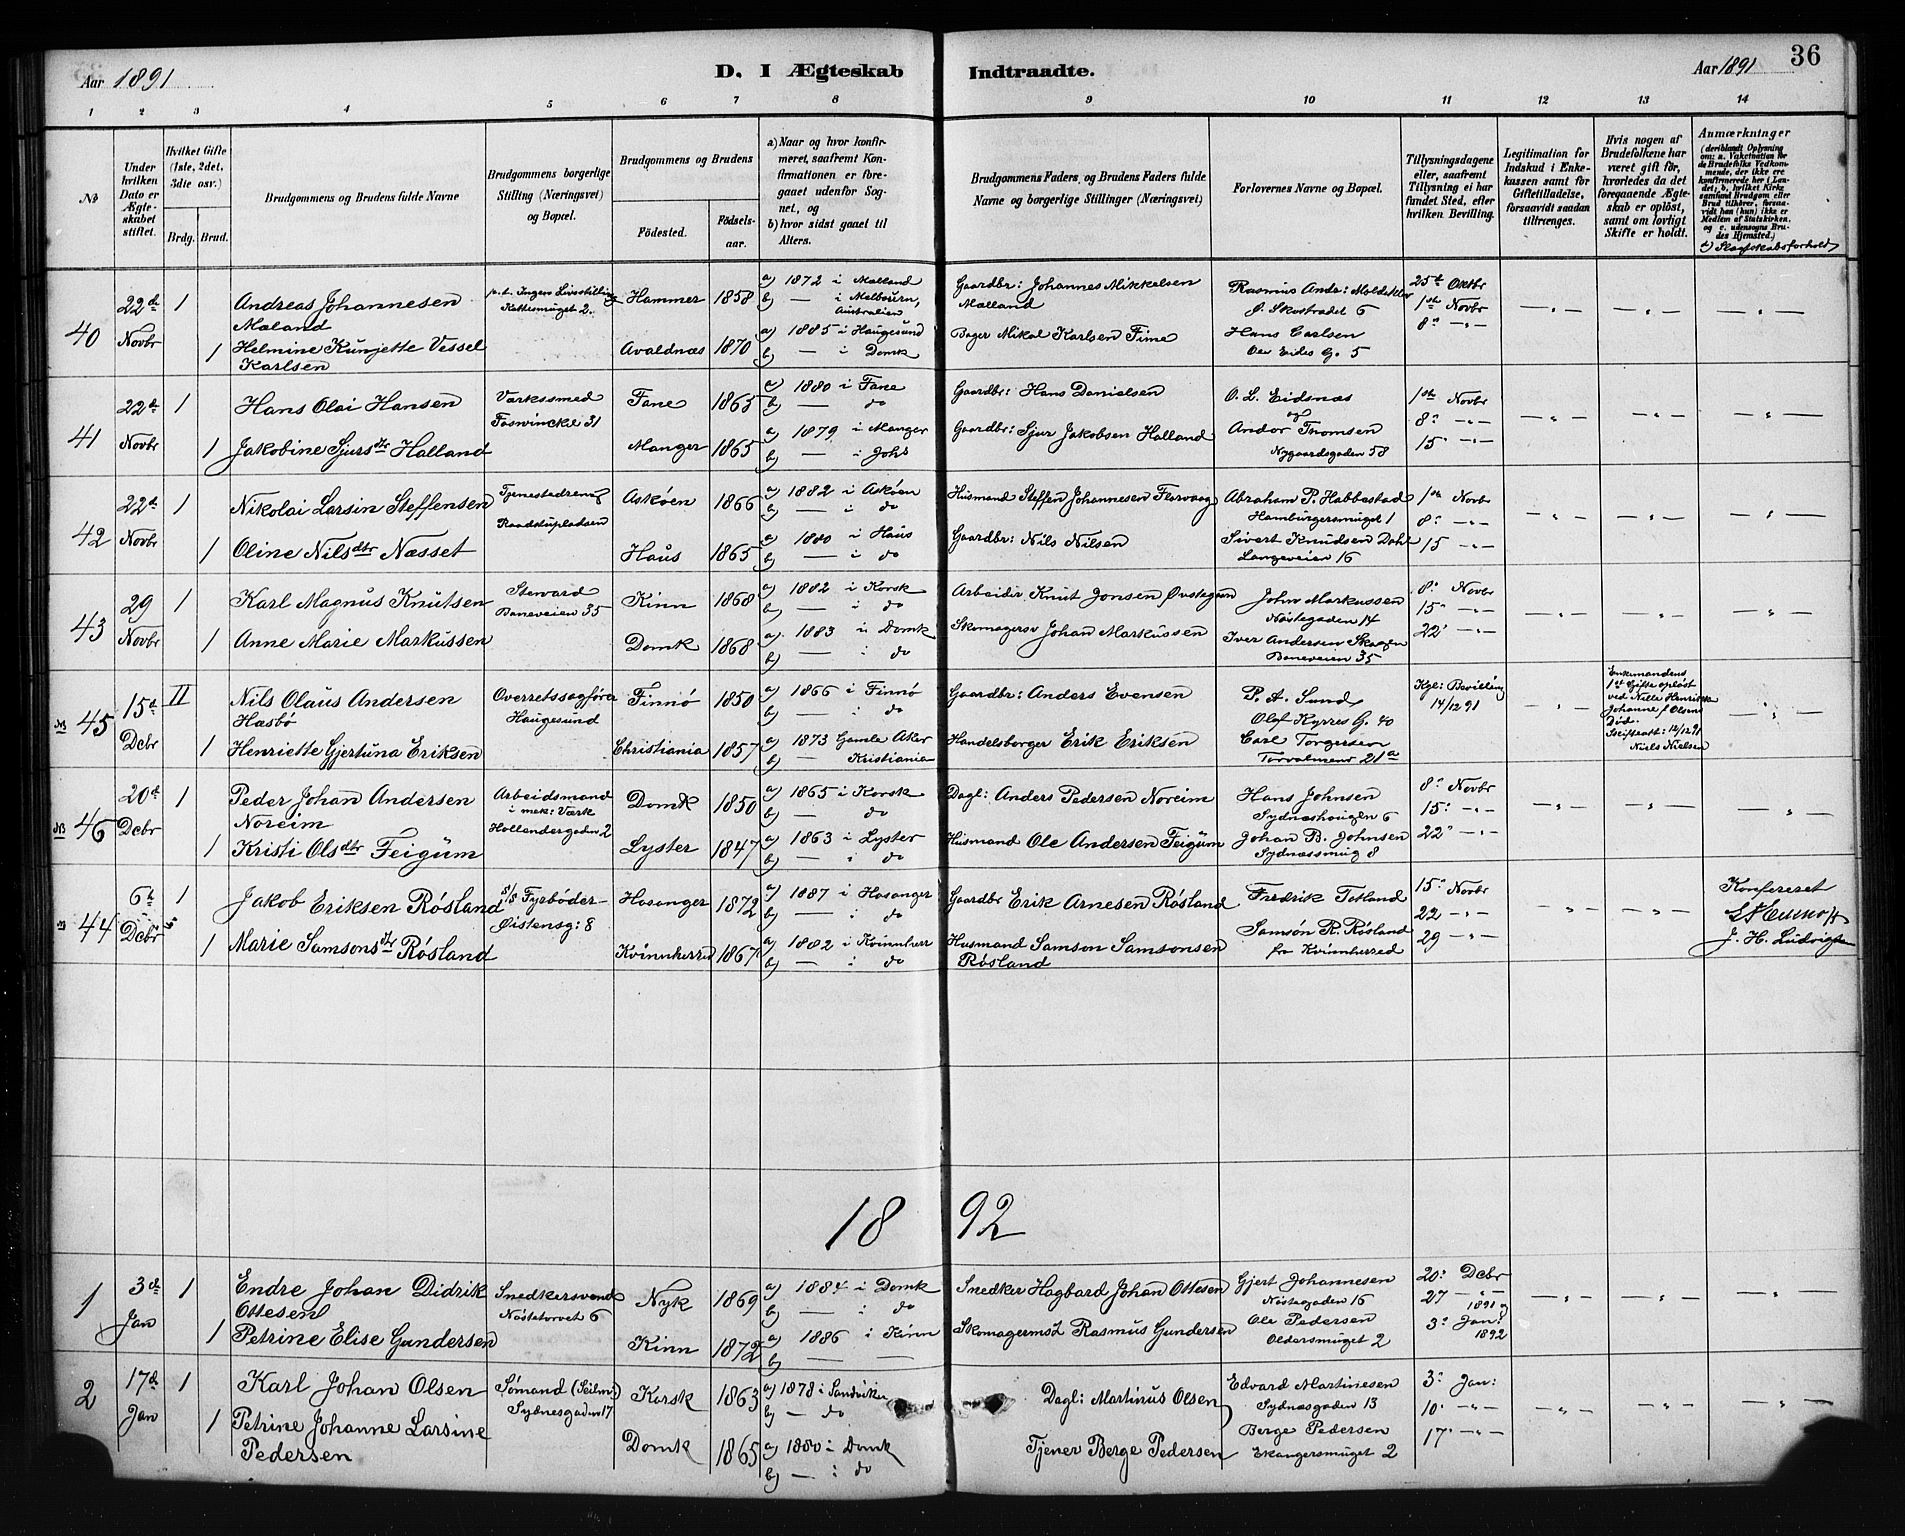 Aar 1891 D. I Ægteskab Indtraadte. Aar 1891 36
1 2 3 4 5 6 7 8 9 10 11 12 13 14
№
Under hvilken Dato er Ægteskabet stiftet.
Hvilket Gifte (1ste, 2det, 3die osv.)
Brdg. Brud.
Brudgommens og Brudens fulde Navne
Brudgommens borgerlige Stilling (Næringsvei) og Bopæl.
Brudgommens og Brudens
Fødested.
Fødselsaar.
a) Naar og hvor konfirmeret, saafremt Konfirmationen er foregaaet udenfor Sognet, og
b) hvor sidst gaaet til Alters.
Brudgommens Faders, og Brudens Faders fulde Navne og borgerlige Stillinger (Næringsvei)
Forlovernes Navne og Bopæl.
Tillysningsdagene eller, saafremt Tillysning ei har fundet Sted, efter hvilken Bevilling.
Legitimation for Indskud i Enkekassen samt for Giftetilladelse, forsaavidt saadan tiltrænges.
Hvis nogen af Brudefolkene har været gift før, hvorledes da det foregaaende Ægteskab er opløst, samt om lovligt Skifte er holdt.
Anmærkninger
(deriblandt Oplysning om: a. Vakcination for de Brudefolks Vedkommende, der ikke ere konfirmerede her i Landet; b. hvilket Kirkesamfund Brudgom eller Brud tilhører, forsaavidt han (hun) ikke er Medlem af Statskirken, og c. udensogns Brudes Hjemsted.)
Slægtskabsforhold
40 22de Novbr 1 Andreas Johannesen Mæland
p.t. Ingen Livsstilling
Kattesmuget 2.
Hammer 1858
a) 1872 i Mælland
b) — i Melbourn, Australien
Gaardbr: Johannes Mikkelsen Mælland
Rasmus Andr: Moldeklev
Ø. Skostrædet 6
25de Oktbr
1ste Novbr
8de —"—
1 Helmine Kunjette Vessel Karlsen
Avaldnæs 1870
a) 1885 i Haugesund
b) — i Domk
Bager Mikal Karlsen Fime
Hans Carlsen
Ole Eides G. 5
41 22de Novbr 1 Hans Olai Hansen
Værkssmed
Foswinckel 31
Fane 1865
a) 1880 i Fane
b) — do
Gaardbr: Hans Danielsen
O. L. Eidsnæs
og
1ste Novbr
8de —"—
15 —"—
1 Jakobine Sjursdtr Halland
Manger 1865
a) 1879 i Manger
b) — i Johs
Gaardbr: Sjur Jakobsen Halland
Andor Thomsen
Nygaardsgaden 58
42 22de Novbr 1 Nikolai Larsin Steffensen
Tjenestedreng
Raadstupladsen
Askøen 1866
a) 1882 i Askøen
b) — i do
Husmand Steffen Johannesen Florvaag
Abraham P. Habbestad
Hamburgersmuget 1
1ste Novbr
8de —"—
15 —"—
1 Oline Nilsdtr Næsset
Haus 1865
a) 1880 i Haus
b) — i do
Gaardbr: Nils Nilsen
Sivert Knudsen Dahl
Langeveien 16
43 29 Novbr 1 Karl Magnus Knutsen
Steward
Baneveien 35
Kinn 1868
a) 1882 i Korsk
b) — i do
Arbeider Knut Jonsen Øvstegaen
John Markussen
Nøstegaden 14
8de Novbr
15 —"—
22 —"—
1 Anne Marie Markussen
Domk 1868
a) 1883 i Domk
b) — i do
Skomagersv Johan Markussen
Iver Andersen Skogen
Baneveien 35
NB 45 15de Dcbr II Nils Olaus Andersen Hasbø
Overretssagfører
Haugesund
Finnø 1850
a) 1866 i Finnø
b) — do
Gaardbr: Anders Evensen
P. A. Sund
Olaf Kyrres G. 40
Kgl: Bevilling
14/12 91
Enkemandens
1ste Gifte opløst
ved Nille Henrikke
Johanne f Olsens
Død.
Skifteatt: 12/12 91
Niels Nielsen
1 Henriette Gjertuna Eriksen
Christiania 1857
a) 1873 Gamle Aker
b) — Kristiania
Handelsborger Erik Eriksen
Carl Torgersen
Torvalmenr 21a
NB 46 20de Dcbr 1 Peder Johan Andersen Noreim
Arbeidsmand
i mek: Værk
Hollendergaden 2
Domk 1850
a) 1865 i Korsk
b) — do
Dagl: Anders Pedersen Noreim
Hans Johnsen
Sydneshaugen 6
8de Novbr
15: —"—
22 —"—
1 Kristi Olsdtr Feigum
Lyster 1847
a) 1863 i Lyster
b) — i do
Husmand Ole Andersen Feigum
Johan B. Johnsen
Sydnæssmug 8
44 6te Dcbr 1 Jakob Eriksen Røsland
S/S Fyrbøder
Øistensg: 8
Hosanger 1872
a) 1887 i Hosanger
b) — i do
Gaardbr Erik Arnesen Røsland
Fredrik Totland
15de Novbr
22 —"—
29 —"—
Konfereret
J. H. Ludvigsen
1 Marie Samsonsdtr Røsland
Kvinnherred 1867
a) 1882 i Kvinnherr
b) — i do
Husmand Samson Samsonsen Røsland
Samsøn R. Røsland
fra Kvinnherred
1892
1 3de Jan 1 Endre Johan Didrik Ottesen
Snedkersvend
Nøstetorvet 6
Nyk 1869
a) 1884 i Domk
b) — i do
Snedker Hagbard Johan Ottesen
Gjert Johannesen
Nøstegaden 16
20: Dcbr
27 —"—
1891 og
3: Jan:
1892
1 Petrine Elise Gundersen
Kinn 1872
a) 1886 i Kinn
b) — —
Skomagermst Rasmus Gundersen
Ole Pedersen
Oldersmuget 2
2 17de Jan 1 Karl Johan Olsen
Sømand (Seilm.)
Sydnesgaden 17
Korsk 1863
a) 1878 i Sandviken
b) — do
Dagl: Martinus Olsen
Edvard Martinesen
Sydnæsgaden 13
3: Jan:
10: —"—
17 —"—
1 Petrine Johanne Larsine Pedersen
Domk 1865
a) 1880 i Domk
b) — i do
Tjener Berge Pedersen
Berge Pedersen
Ekangersmuget 2